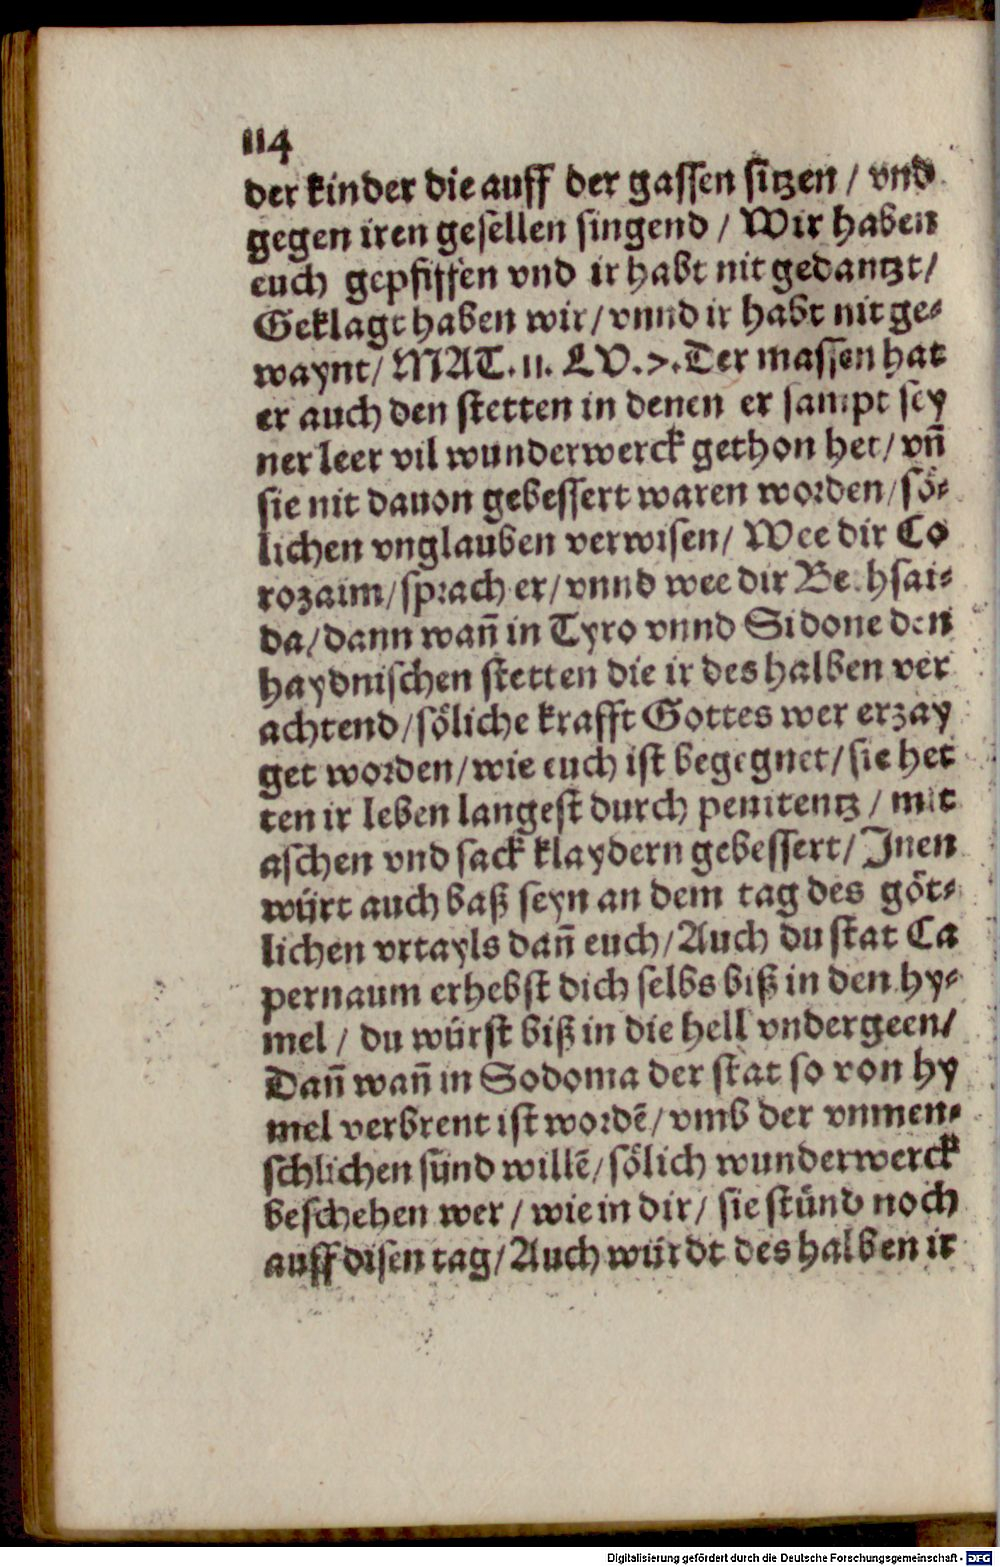 114
der kinder die auff der gassen sitzen / vnd
gegen iren gesellen singend / Wir haben
euch gepfiffen vnd ir habt nit gedantzt /
Geklagt haben wir / vnnd ir habt nit ge⸗
waynt / MAT. 11. LV. 7. Der massen hat
er auch den stetten in denen er sampt sey
ner leer vil wunderwerck gethon het / vñ
sie nit dauon gebessert waren worden / sö⸗
lichen vnglauben verwisen / Wee dir Co
rozaim / sprach er / vnnd wee dir Bethsai⸗
da / dann wañ in Tyro vnnd Sidone den
haydnischen stetten die ir des halben ver
achtend / söliche krafft Gottes wer erzay
get worden / wie euch ist begegnet / sie het
ten ir leben langest durch penitentz / mit
aschen vnd sack klaydern gebessert / Inen
würt auch baß seyn an dem tag des göt⸗
lichen vrtayls dañ euch / Auch du stat Ca
pernaum erhebst dich selbs biß in den hy⸗
mel / du würst biß in die hell vndergeen /
Dañ wañ in Sodoma der stat so von hy
mel verbrent ist wordẽ / vmb der vnmen⸗
schlichen sünd willẽ / sölich wunderwerck
beschehen wer / wie in dir / sie stünd noch
auff disen tag / Auch würdt des halben ir
Digitalisierung gefördert durch die Deutsche Forschungsgemeinschaft - DFG